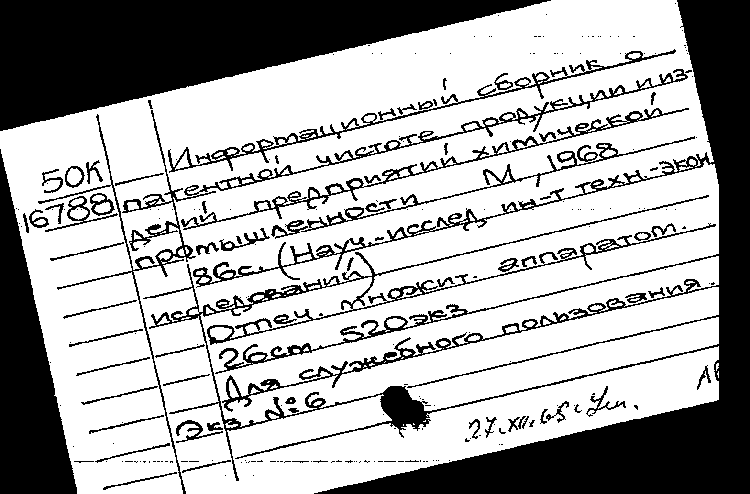 Информационный сборник о
50К
16788
патентной чистоте продукции и из-
делий предприятий химической
промышленности М., 1968
86с. (Науч.-исслед. ин-т техн.-экон.
исследований)
Отпеч. множит. аппаратом.
26см. 520экз
Для служебного пользования.
Экз. №:6.
27.XII.65г.